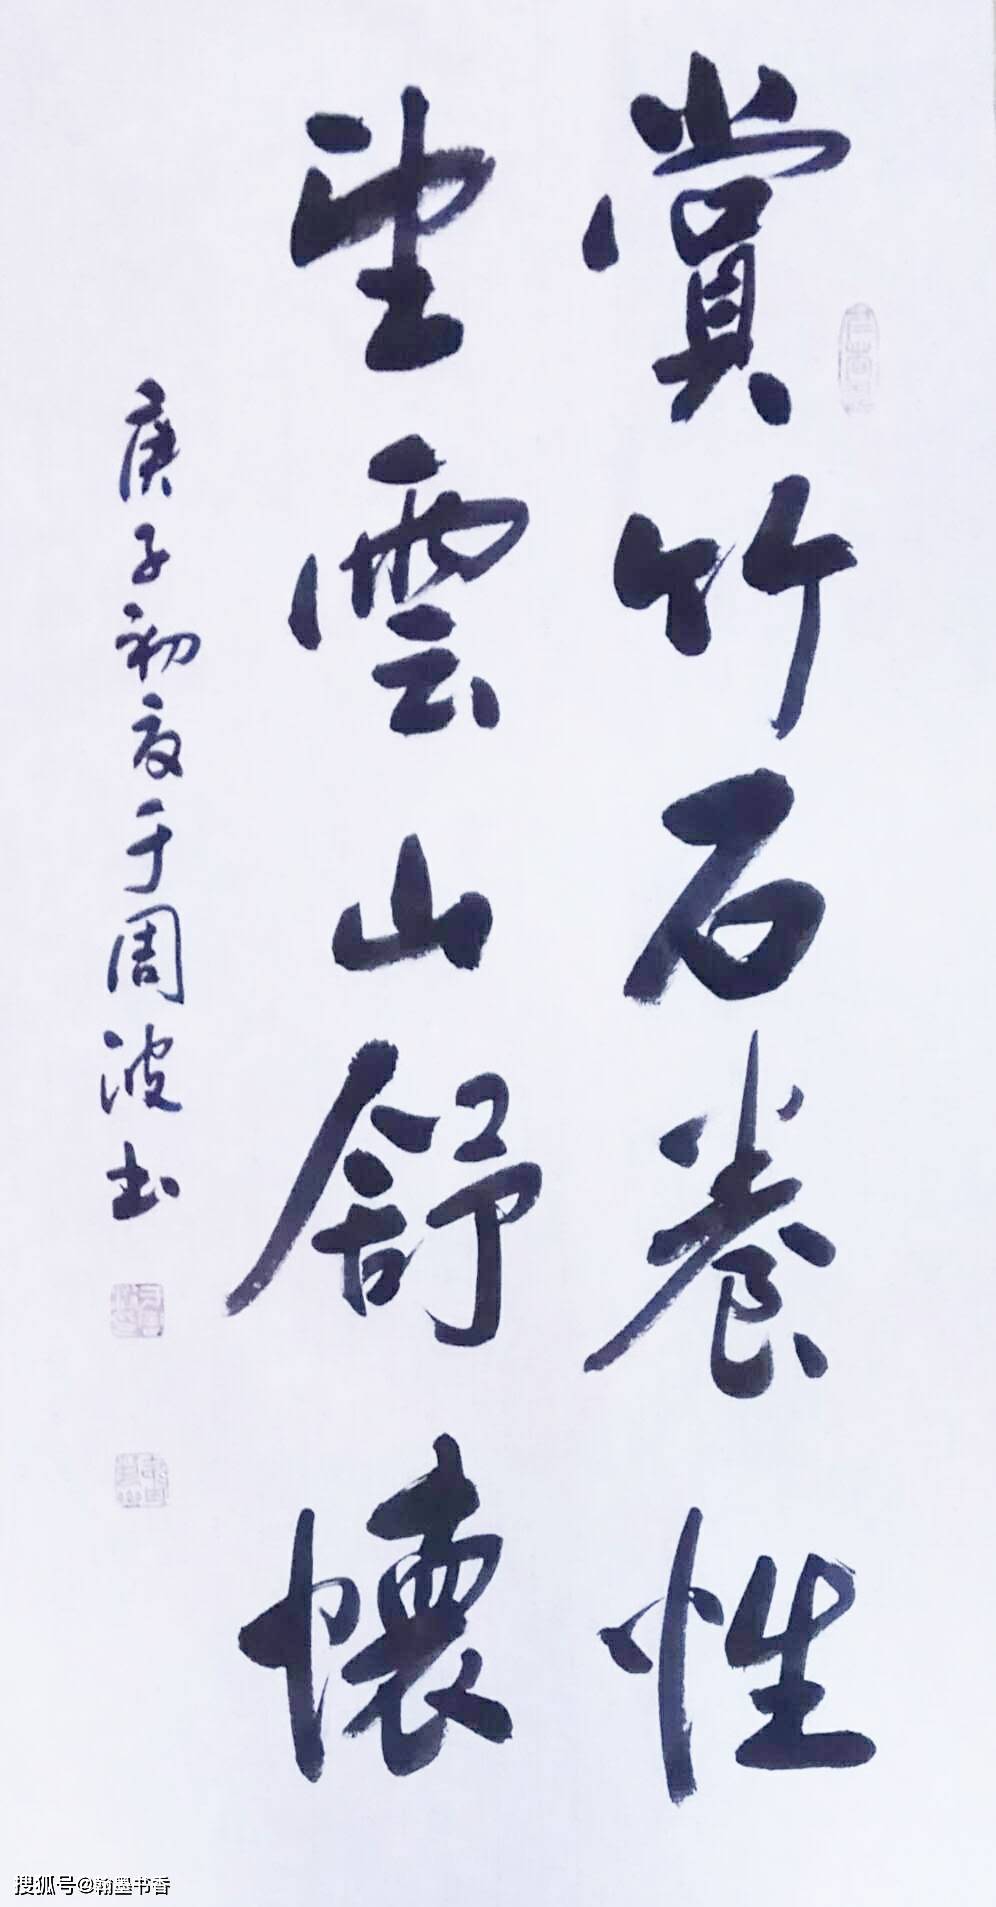 賞竹石養性
望雲山舒懷
庚子初夏于周波书
搜狐号@翰墨书香